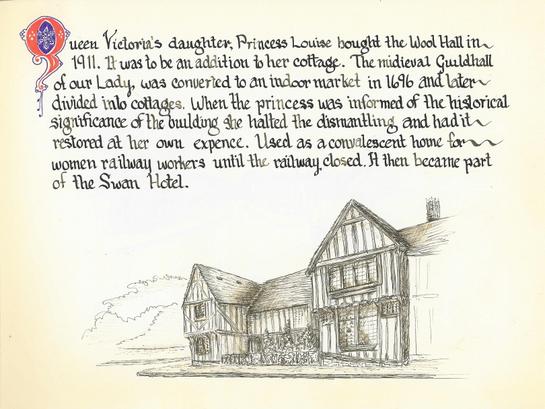 Queen Victoria's daughter, Princess Louise bought the Wool Hall in
1911. It was to be an addition to her cottage. The midieval Guildhall
of our Lady, was converted to an indoor market in 1696 and later
divided into cottages. When the princess was informed of the historical
significance of the building she halted the dismantling and had it
restored at her own expence. Used as a convalescent home for
women railway workers until the railway closed. It then became part
of the Swan Hotel.